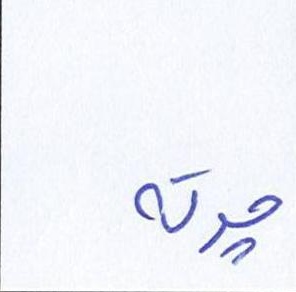 چرته